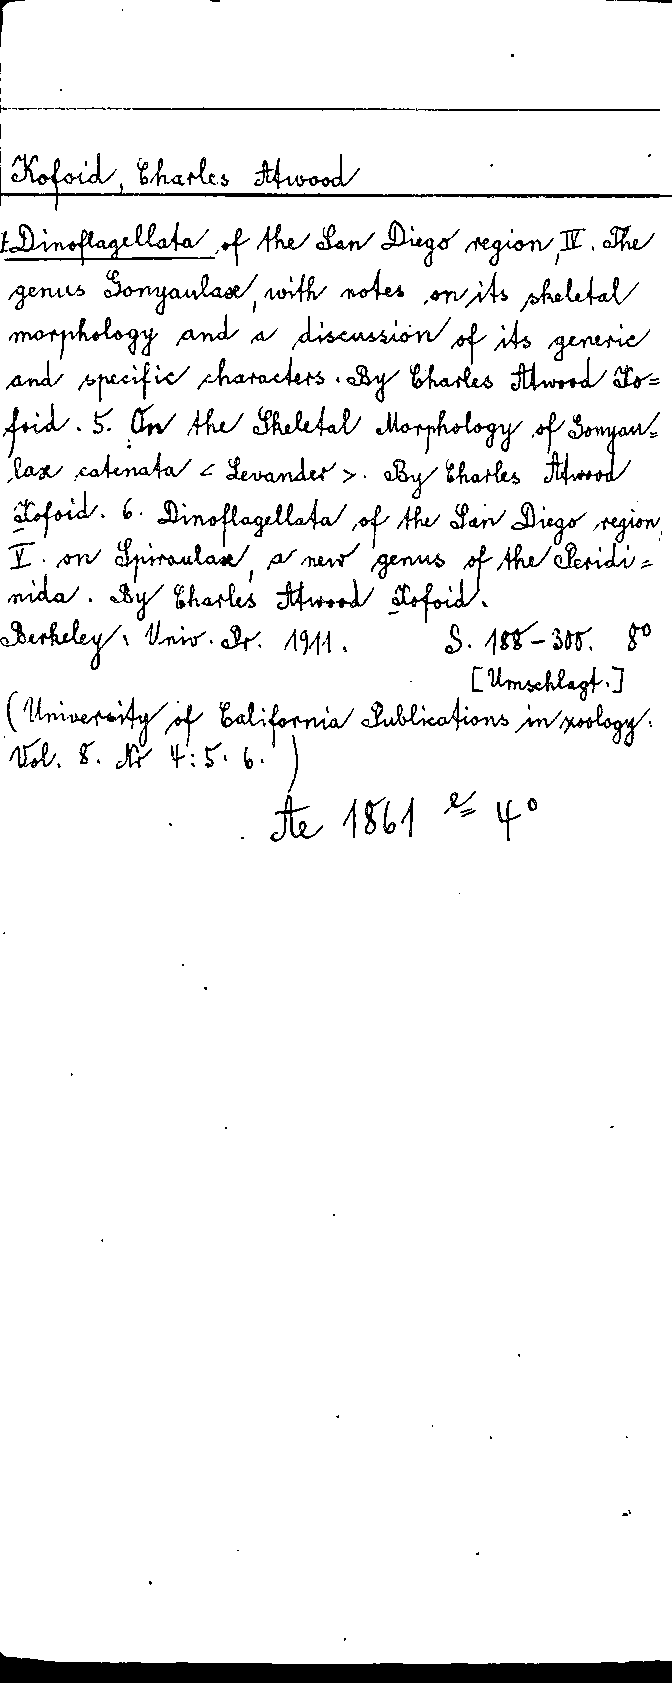 Kofoid, Charles Atwood
1. Dinoflagellata of the San Diego region, IV. The
genus Gonyaulax, with notes on its skeletal
morphology and a discussion of its generic
and specific characters. By Charles Atwood Ko=
foid. 5. On the Skeletal Morphology of Gonyau=
lax catenata < Levander >. By Charles Atwood
Kofoid. 6. Dinoflagellata of the San Diego region,
V. on Spiraulax, a new genus of the Peridi=
nida. By Charles Atwood Kofoid.
Berkeley: Univ. Pr. 1911. S. 188-300. 8°
[Umschlagt.]
(University of California Publications in zoology.
Vol. 8. Nr 4:5. 6.)
Ae 1861 4°